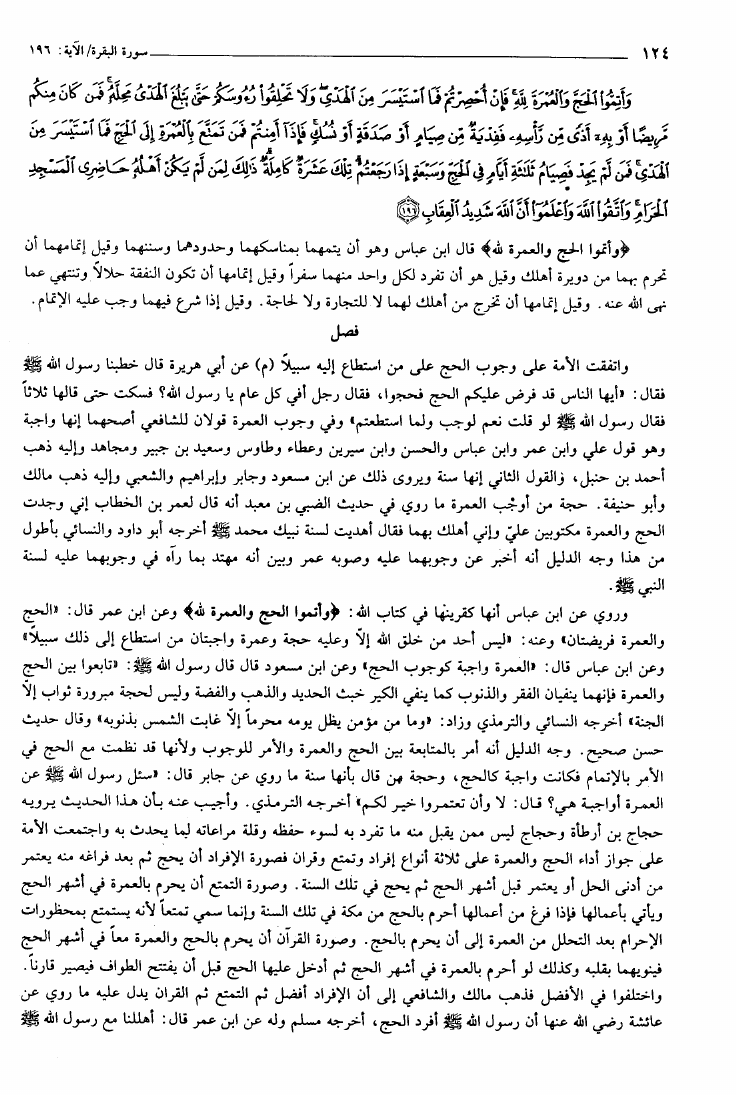 ١٢٤ ــــــــــــــــــــــــــــــــ سورة البقرة/ الآية: ١٩٦
وَأَتِمُّوا۟ ٱلْحَجَّ وَٱلْعُمْرَةَ لِلَّهِ ۚ فَإِنْ أُحْصِرْتُمْ فَمَا ٱسْتَيْسَرَ مِنَ ٱلْهَدْىِ ۖ وَلَا تَحْلِقُوا۟ رُءُوسَكُمْ حَتَّىٰ يَبْلُغَ ٱلْهَدْىُ مَحِلَّهُۥ ۚ فَمَن كَانَ مِنكُم
مَّرِيضًا أَوْ بِهِۦٓ أَذًى مِّن رَّأْسِهِۦ فَفِدْيَةٌ مِّن صِيَامٍ أَوْ صَدَقَةٍ أَوْ نُسُكٍ ۚ فَإِذَآ أَمِنتُمْ فَمَن تَمَتَّعَ بِٱلْعُمْرَةِ إِلَى ٱلْحَجِّ فَمَا ٱسْتَيْسَرَ مِنَ
ٱلْهَدْىِ ۚ فَمَن لَّمْ يَجِدْ فَصِيَامُ ثَلَـٰثَةِ أَيَّامٍ فِى ٱلْحَجِّ وَسَبْعَةٍ إِذَا رَجَعْتُمْ ۗ تِلْكَ عَشَرَةٌ كَامِلَةٌ ۗ ذَٰلِكَ لِمَن لَّمْ يَكُنْ أَهْلُهُۥ حَاضِرِى ٱلْمَسْجِدِ
ٱلْحَرَامِ ۚ وَٱتَّقُوا۟ ٱللَّهَ وَٱعْلَمُوٓا۟ أَنَّ ٱللَّهَ شَدِيدُ ٱلْعِقَابِ ﴿١٩٦﴾
﴿وأتموا الحج والعمرة لله﴾ قال ابن عباس وهو أن يتمهما بمناسكهما وحدودهما وسننهما وقيل إتمامهما أن
تحرم بهما من دويرة أهلك وقيل هو أن تفرد لكل واحد منهما سفراً وقيل إتمامها أن تكون النفقة حلالاً وتنتهي عما
نهى الله عنه. وقيل إتمامها أن تخرج من أهلك لهما لا للتجارة ولا لحاجة. وقيل إذا شرع فيهما وجب عليه الإتمام.
فصل
واتفقت الأمة على وجوب الحج على من استطاع إليه سبيلاً (م) عن أبي هريرة قال خطبنا رسول الله ﷺ
فقال: «أيها الناس قد فرض عليكم الحج فحجوا، فقال رجل أفي كل عام يا رسول الله؟ فسكت حتى قالها ثلاثاً
فقال رسول الله ﷺ لو قلت نعم لوجب ولما استطعتم» وفي وجوب العمرة قولان للشافعي أصحهما إنها واجبة
وهو قول علي وابن عمر وابن عباس والحسن وابن سيرين وعطاء وطاوس وسعيد بن جبير ومجاهد وإليه ذهب
أحمد بن حنبل، والقول الثاني إنها سنة ويروى ذلك عن ابن مسعود وجابر وإبراهيم والشعبي وإليه ذهب مالك
وأبو حنيفة. حجة من أوجب العمرة ما روي في حديث الضبي بن معبد أنه قال لعمر بن الخطاب إني وجدت
الحج والعمرة مكتوبين عليّ وإني أهلك بهما فقال أهديت لسنة نبيك محمد ﷺ أخرجه أبو داود والنسائي بأطول
من هذا وجه الدليل أنه أخبر عن وجوبهما عليه وصوبه عمر وبين أنه مهتد بما رآه في وجوبهما عليه لسنة
النبي ﷺ.
وروي عن ابن عباس أنها كقرينها في كتاب الله: ﴿وأتموا الحج والعمرة لله﴾ وعن ابن عمر قال: «الحج
والعمرة فريضتان» وعنه: «ليس أحد من خلق الله إلاّ وعليه حجة وعمرة واجبتان من استطاع إلى ذلك سبيلاً»
وعن ابن عباس قال: «العمرة واجبة كوجوب الحج» وعن ابن مسعود قال قال رسول الله ﷺ: «تابعوا بين الحج
والعمرة فإنهما ينفيان الفقر والذنوب كما ينفي الكير خبث الحديد والذهب والفضة وليس لحجة مبرورة ثواب إلاّ
الجنة» أخرجه النسائي والترمذي وزاد: «وما من مؤمن يظل يومه محرماً إلاّ غابت الشمس بذنوبه» وقال حديث
حسن صحيح. وجه الدليل أنه أمر بالمتابعة بين الحج والعمرة والأمر للوجوب ولأنها قد نظمت مع الحج في
الأمر بالإتمام فكانت واجبة كالحج، وحجة من قال بأنها سنة ما روي عن جابر قال: «سئل رسول الله ﷺ عن
العمرة أواجبة هي؟ قال: لا وأن تعتمروا خير لكم» أخرجه الترمذي. وأجيب عنه بأن هذا الحديث يرويه
حجاج بن أرطأة وحجاج ليس ممن يقبل منه ما تفرد به لسوء حفظه وقلة مراعاته لما يحدث به واجتمعت الأمة
على جواز أداء الحج والعمرة على ثلاثة أنواع إفراد وتمتع وقران فصورة الإفراد أن يحج ثم بعد فراغه منه يعتمر
من أدنى الحل أو يعتمر قبل أشهر الحج ثم يحج في تلك السنة. وصورة التمتع أن يحرم بالعمرة في أشهر الحج
ويأتي بأعمالها فإذا فرغ من أعمالها أحرم بالحج من مكة في تلك السنة وإنما سمي تمتعاً لأنه يستمتع بمحظورات
الإحرام بعد التحلل من العمرة إلى أن يحرم بالحج. وصورة القرآن أن يحرم بالحج والعمرة معاً في أشهر الحج
فينويهما بقلبه وكذلك لو أحرم بالعمرة في أشهر الحج ثم أدخل عليها الحج قبل أن يفتتح الطواف فيصير قارناً.
واختلفوا في الأفضل فذهب مالك والشافعي إلى أن الإفراد أفضل ثم التمتع ثم القران يدل عليه ما روي عن
عائشة رضي الله عنها أن رسول الله ﷺ أفرد الحج، أخرجه مسلم وله عن ابن عمر قال: أهللنا مع رسول الله ﷺ